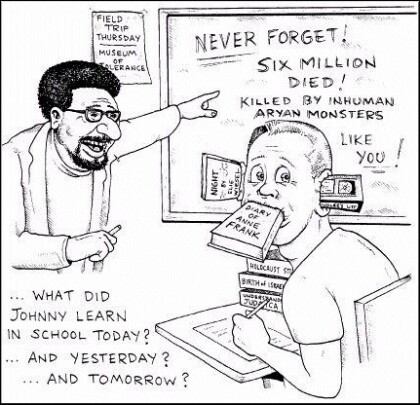 FIELD
TRIP
THURSDAY
MUSEUM
OF
TOLERANCE
NEVER FORGET!
SIX MILLION
DIED!
KILLED BY INHUMAN
ARYAN MONSTERS
LIKE
YOU!
NIGHT
BY
ELIE
WIESEL
DIARY
OF ANNE
FRANK
HOLOCAUST
BIRTH OF ISRAEL
JUDAICA
... WHAT DID
JOHNNY LEARN
IN SCHOOL TODAY?
... AND YESTERDAY?
... AND TOMORROW?